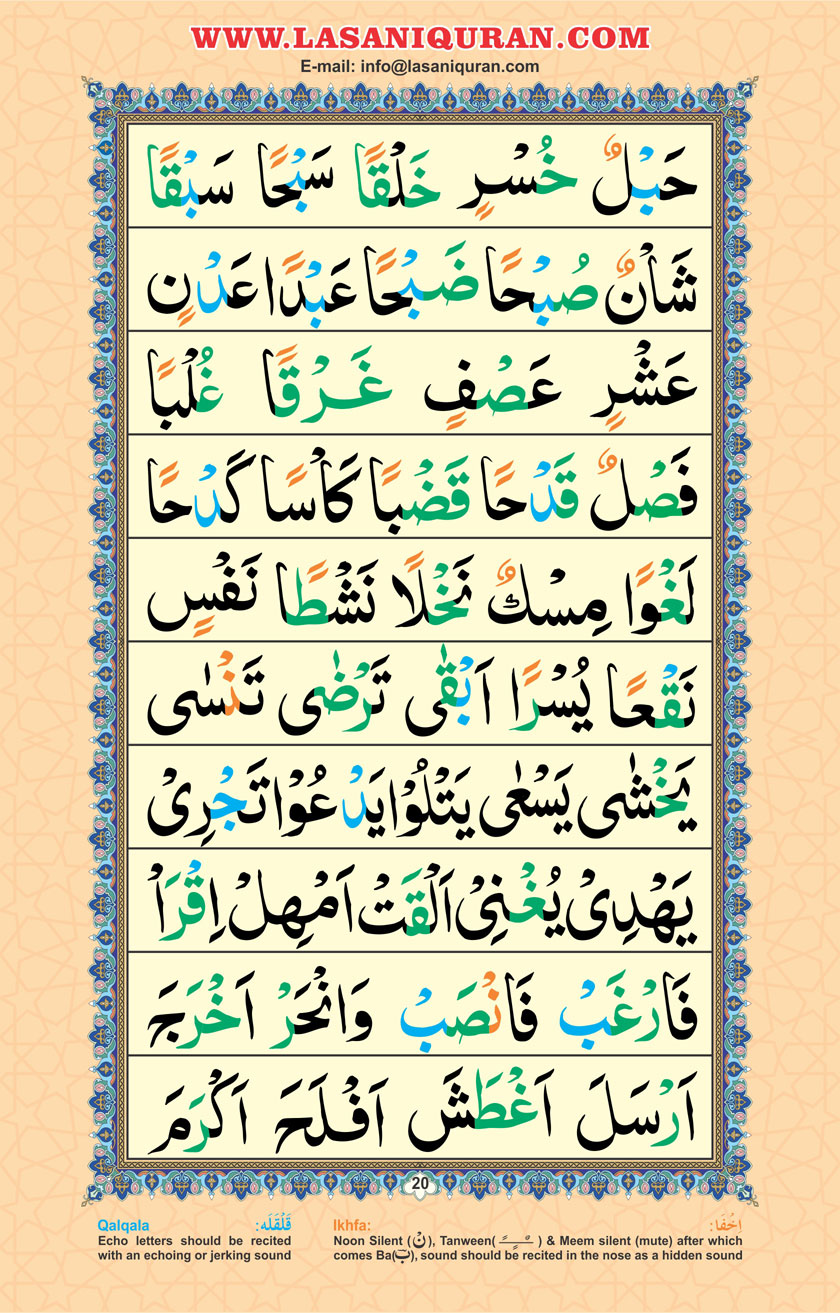 WWW.LASANIQURAN.COM
E-mail: info@lasaniquran.com
حَبْلٌ خُسْرٍ خَلْقًا سَبْحًا سَبْقًا
شَأْنٌ صُبْحًا ضَبْحًا عَبْدًا عَدْنٍ
عَشْرٍ عَصْفٍ غَرْقًا غُلْبًا
فَصْلٌ قَدْحًا قَضْبًا كَأْسًا كَدْحًا
لَغْوًا مِسْكٌ نَخْلًا نَشْطًا نَفْسٍ
نَقْعًا يُسْرًا اَبْقٰى تَرْضٰى تَنْسٰى
يَخْشٰى يَسْعٰى يَتْلُوْا يَدْعُوْا تَجْرِىْ
يَهْدِىْ يُغْنِىْ اَلْقَتْ اَمْهِلْ اِقْرَاْ
فَارْغَبْ فَانْصَبْ وَانْحَرْ اَخْرَجَ
اَرْسَلَ اَغْطَشَ اَفْلَحَ اَكْرَمَ
20
Qalqala قَلْقَلَه:
Echo letters should be recited
with an echoing or jerking sound
Ikhfa: اِخْفَا:
Noon Silent (نْ), Tanween( ــًــٍــٌ ) & Meem silent (mute) after which
comes Ba(بَ), sound should be recited in the nose as a hidden sound